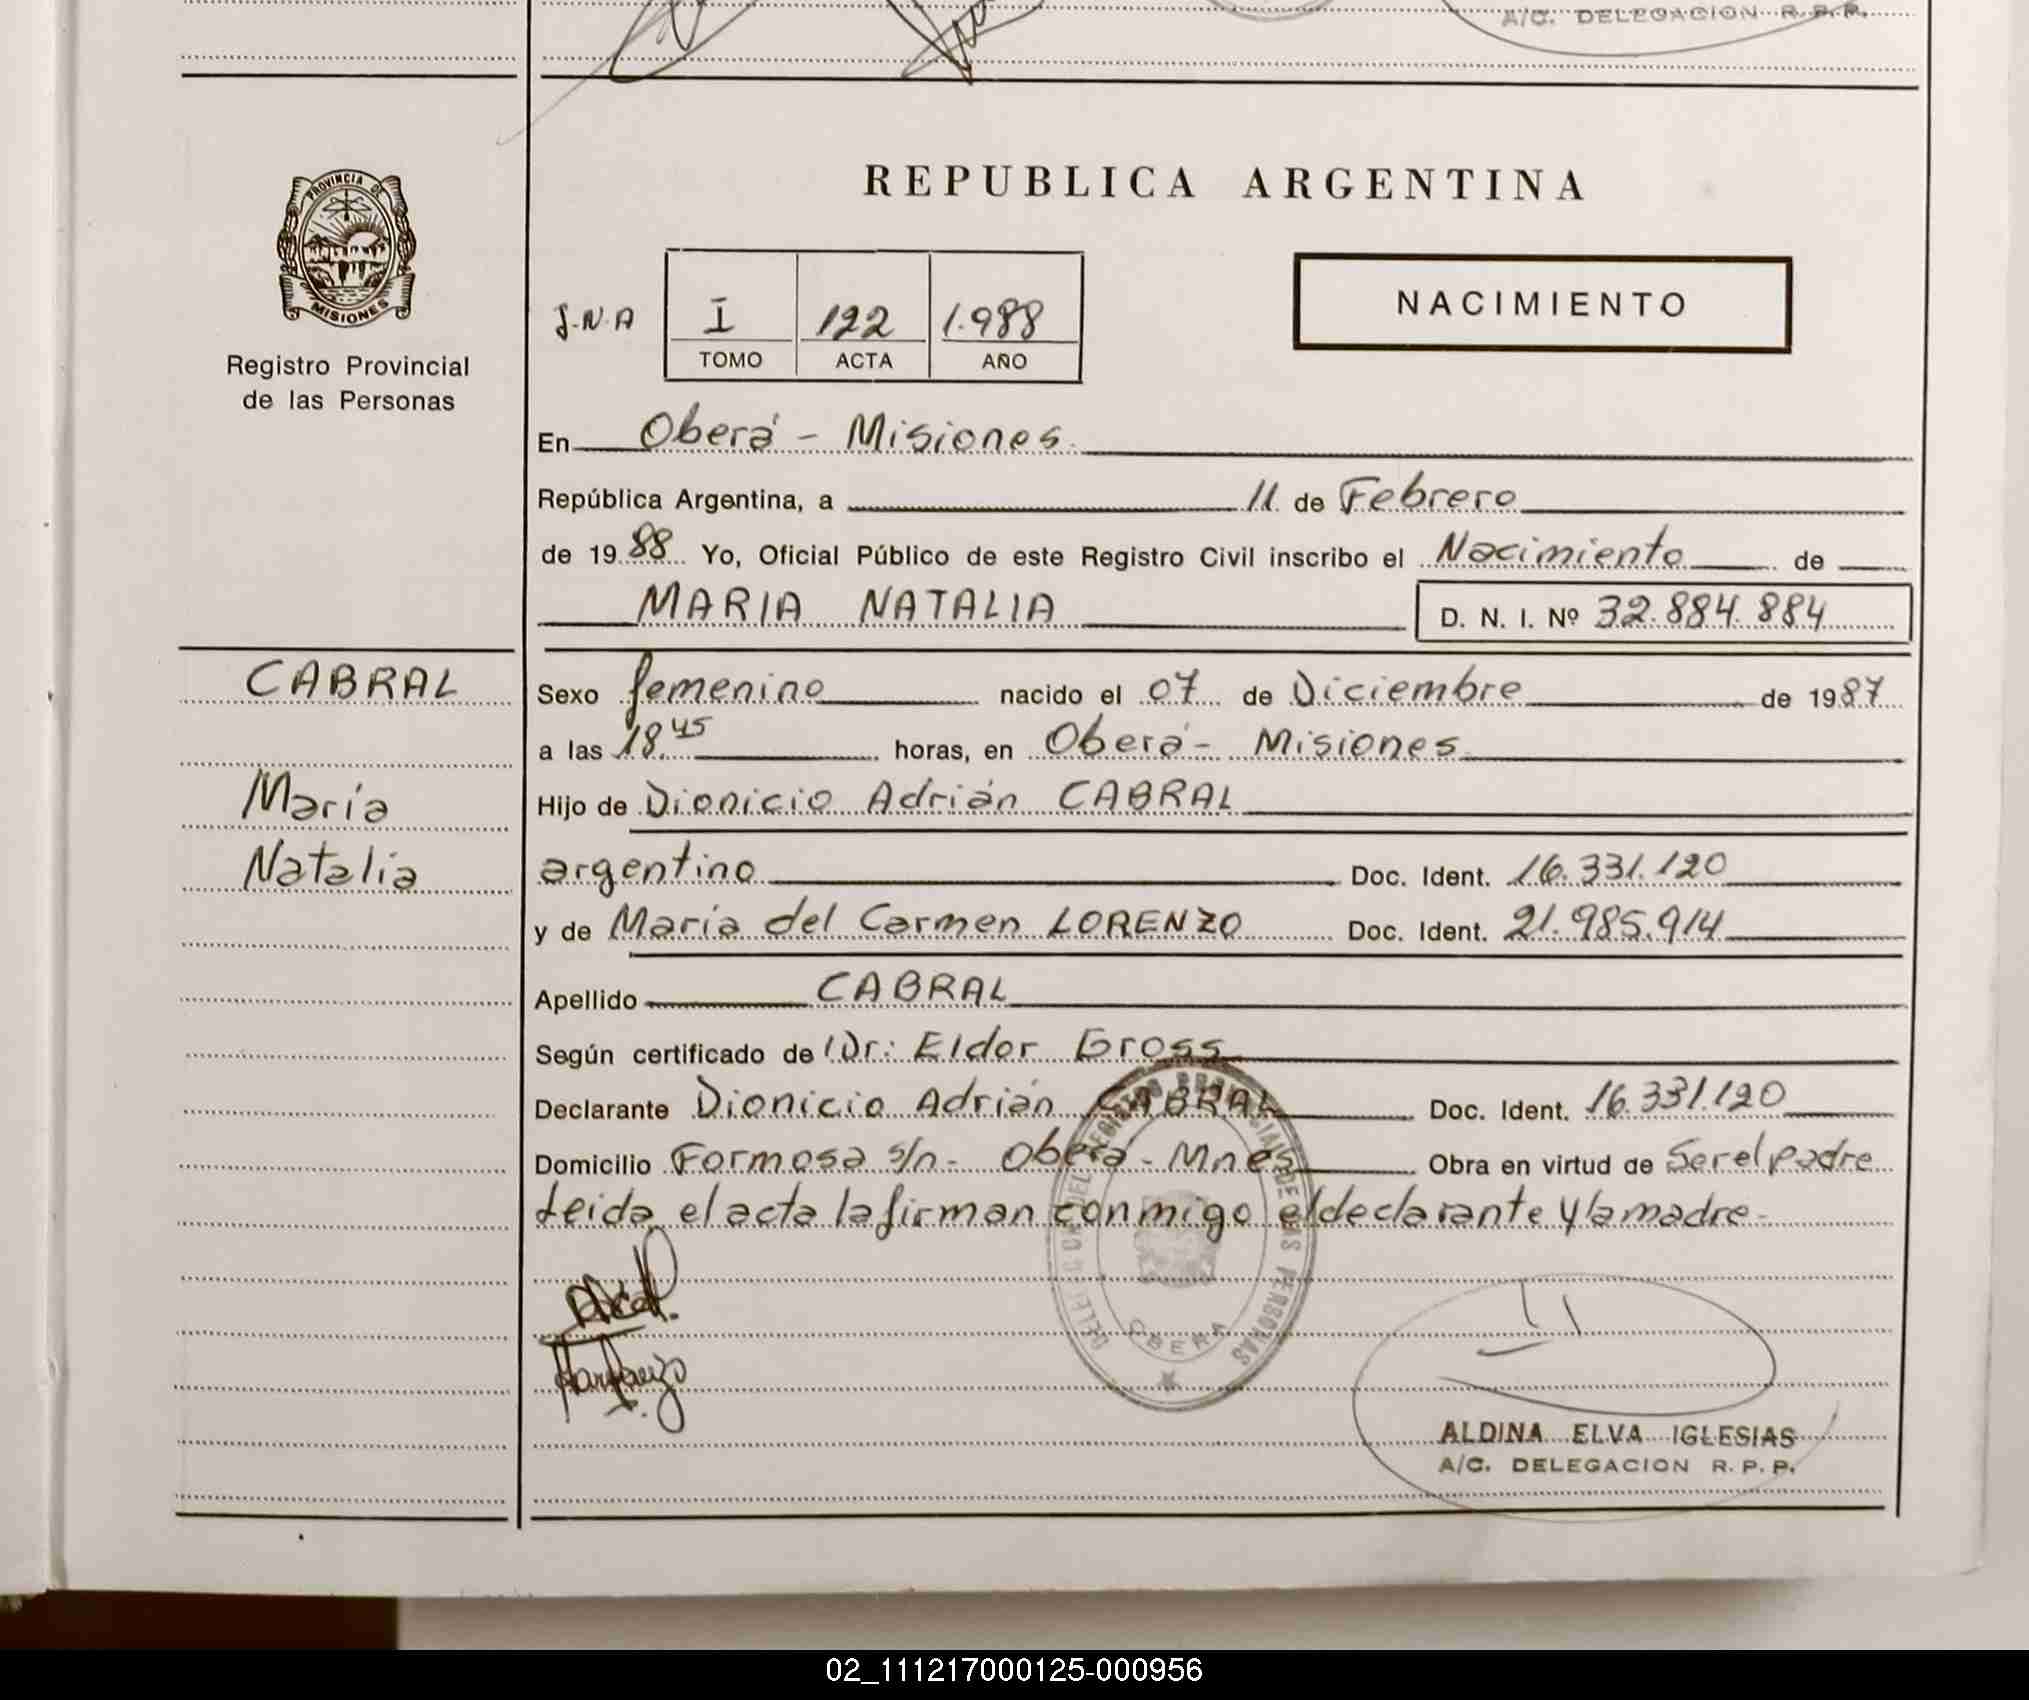 A/C. DELEGACION R.P.P.
PROVINCIA DE
MISIONES
Registro Provincial
de las Personas
REPUBLICA ARGENTINA
NACIMIENTO
J.N.A I 122 1.988
TOMO ACTA AÑO
En Oberá - Misiones
República Argentina, a 11 de Febrero
de 1988 Yo, Oficial Público de este Registro Civil inscribo el Nacimiento de
MARIA NATALIA D. N. I. Nº 32.884.884
CABRAL
María
Natalia
Sexo femenino nacido el 07 de Diciembre de 1987
a las 18.45 horas, en Oberá - Misiones
Hijo de Dionicio Adrián CABRAL
argentino Doc. Ident. 16.331.120
y de María del Carmen LORENZO Doc. Ident. 21.985.914
Apellido CABRAL
Según certificado de Dr: Eldor Gross
Declarante Dionicio Adrián CABRAL Doc. Ident. 16.331.120
Domicilio Formosa s/n - Oberá - Mnes Obra en virtud de Ser el padre
Leida el acta la firman conmigo el declarante y la madre -
OBERA
ALDINA ELVA IGLESIAS
A/C. DELEGACION R.P.P.
02_111217000125-000956